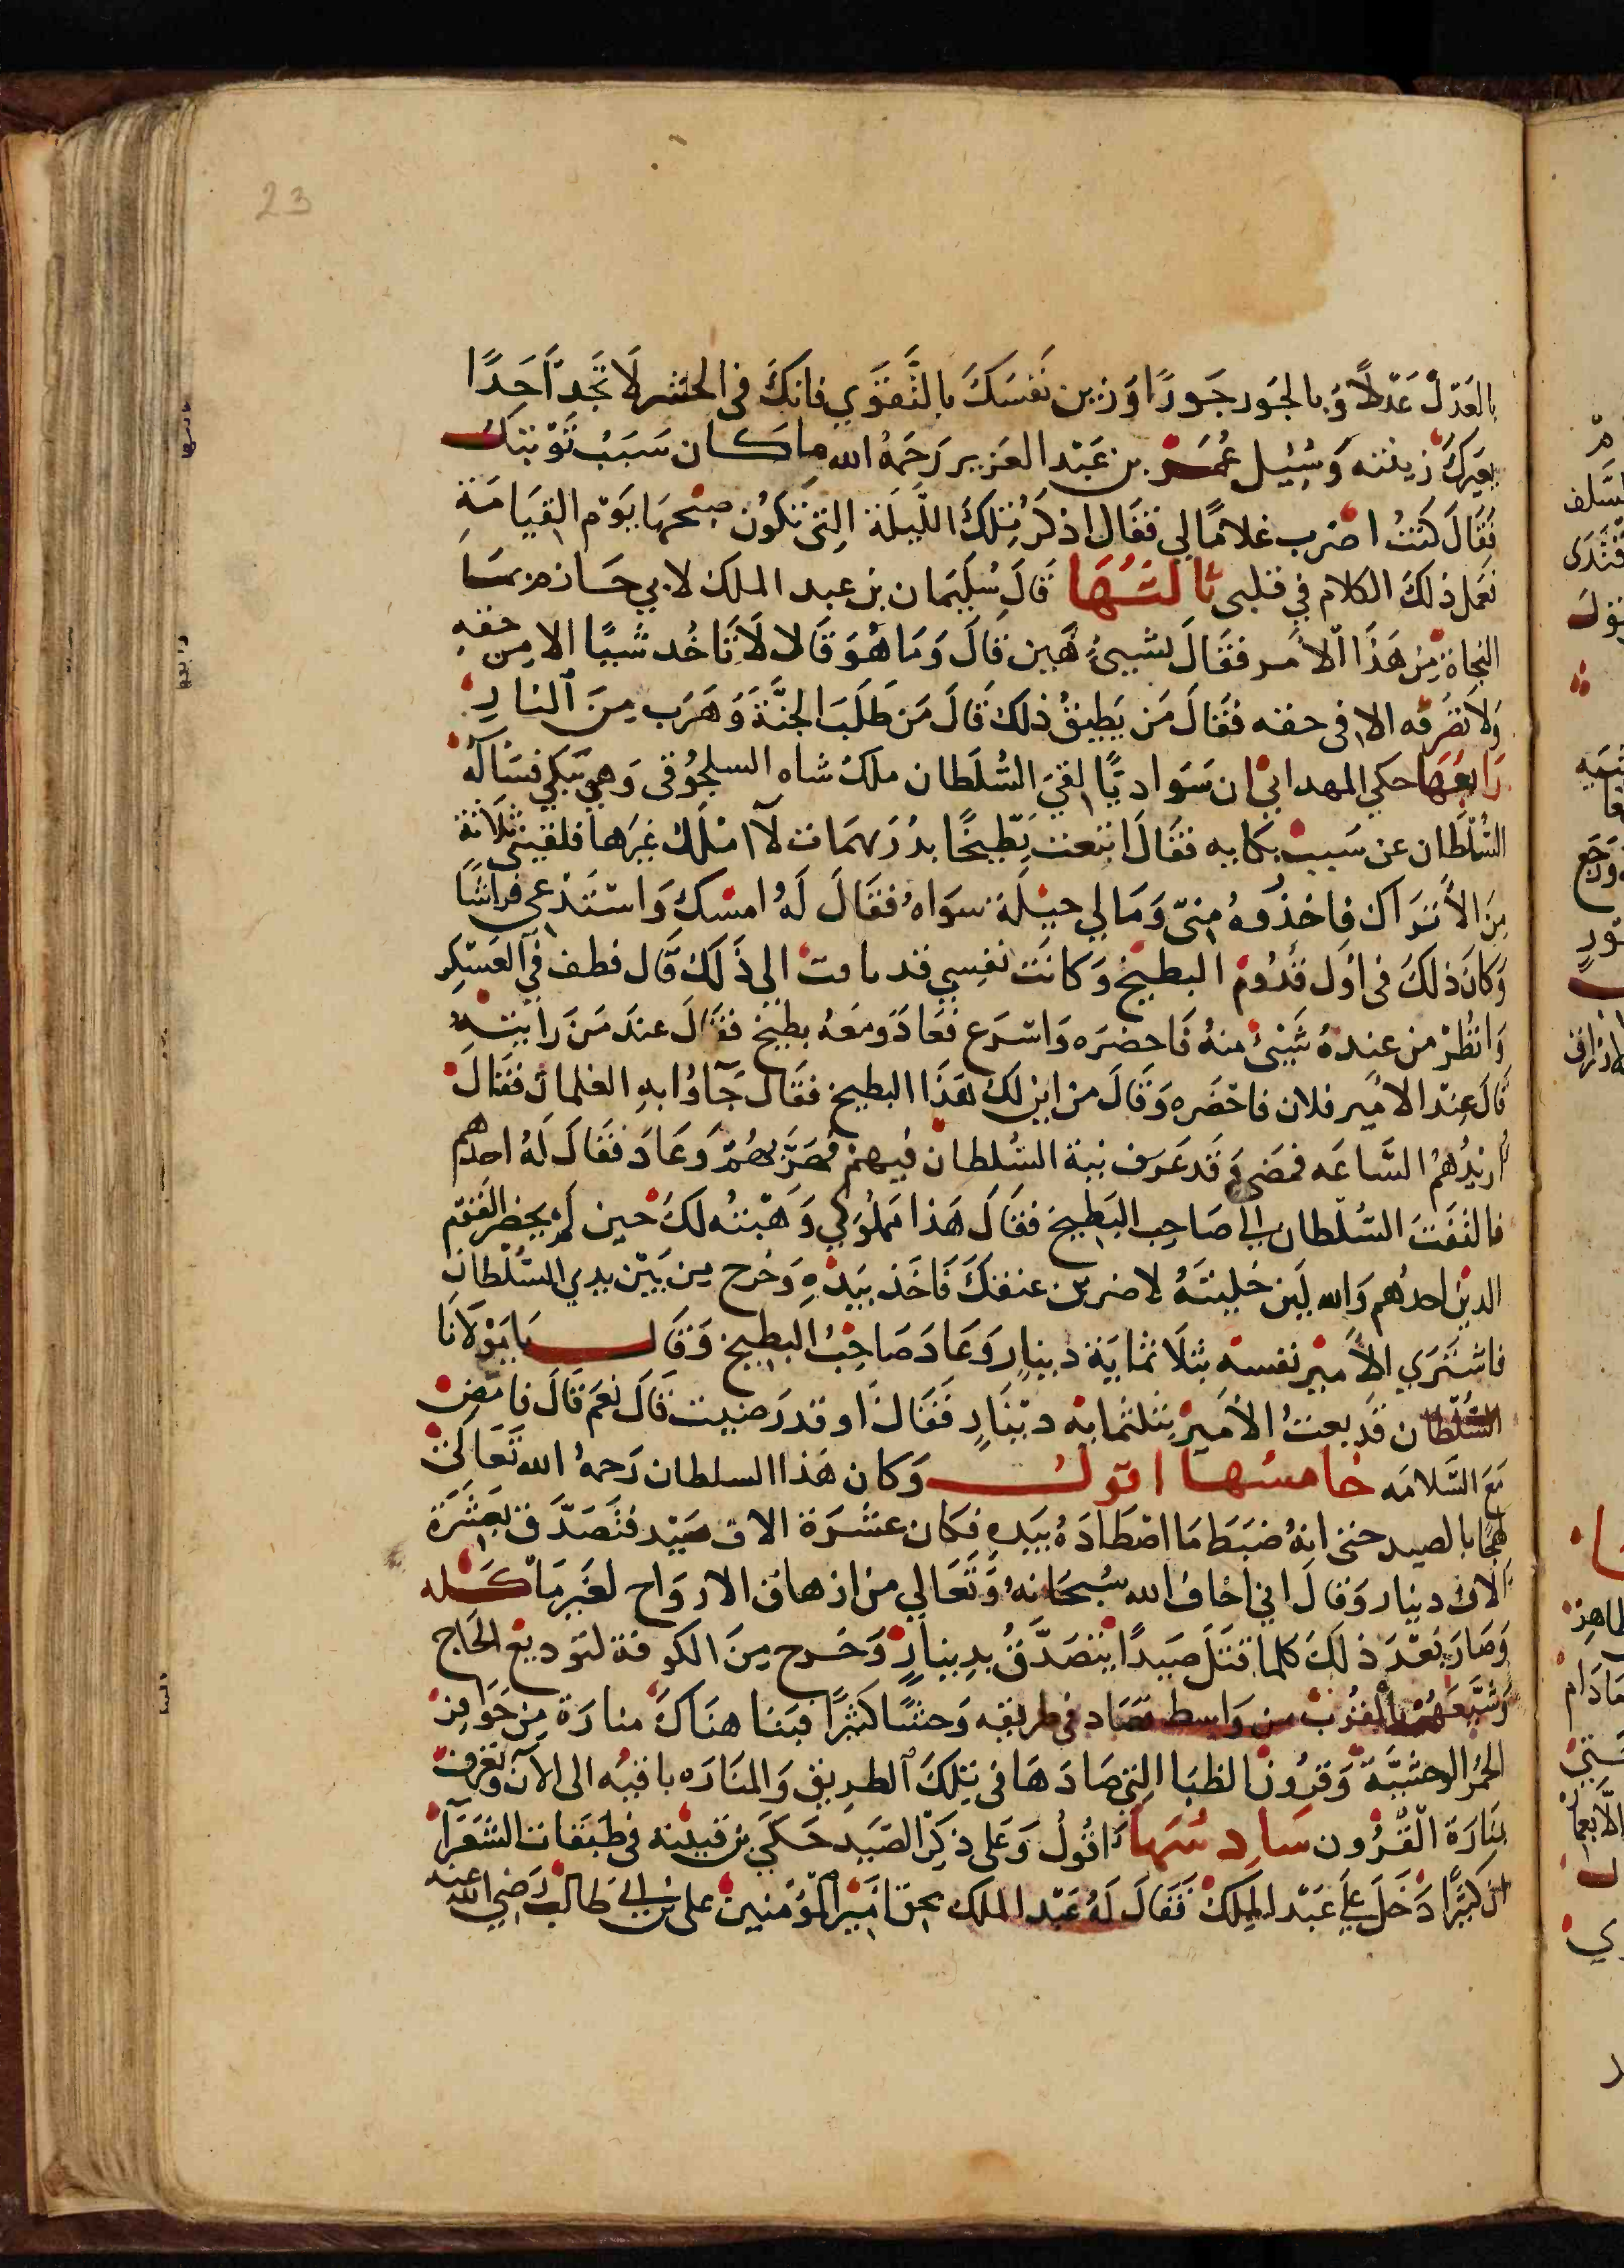 23
بالعَدْل عَدْلاً وَبالجَور جَورًا وَزين نَفسَكَ بِالتَّقوَي فانكَ في الحَشر لَا تَجد اَحَدًا
يعيرك زينته وَسُئِيل عُمَر بن عَبْد العَزيز رَحمَهُ الله ما كان سَبَبُ تَوْبتك
فَقَالَ كنتُ اضرب غلامًا لي فقال اذكر تِلكَ اللَّيلَة التي تكون صبحها يَوْم القِيَامَة
فعمل ذلكَ الكلام في قلبي ثَالثهَا قَالَ سُلَيمَان بن عبد الملك لابي حَازم مَا
النجاة مِن هَذَا الاَمر فقَالَ بشيئٍ هَين قالَ وَمَا هُوَ قَال لا تَاخُد شيًا الا مِن حقه
وَلا تصَرفه الا في حقه فقَالَ مَن يَطيقُ ذلكَ قَالَ مَن طَلَبَ الجَنَّة وَهَرَب مِنَ النار
رَابعهَا حكي الهمداني ان سَوَاديًّا لقيَ السُّلَطان ملك شاه السلجُوقي وَهو يَبكي فسَاَلَهُ
السُّلْطَان عن سَبب بكايه فقَالَ ابتعت بَطّيخًا بدُرَيهمَات لَا امْلك غيَرها فلقيني ثلاثة
مِن الأَتَراك فاخذوهُ مِنيّ وَمَا لي حِيْلَة سوَاهُ فقَالَ لَهُ امسِك وَاستَدعي فراشًا
وَكانَ ذلكَ في اوَل قُدُوم البطيخ وَكانَت نفسِي قد تاقت الي ذَلك قَال فطف في العَسْكر
وَانظُرْ من عندهُ شَيئ منهُ فَاحضرَه وَاسْرَع فعَادَ وَمعَهُ بطيخ فقالَ عندَ مَن رايتهُ
قالَ عِنْد الامَير فلان فاحْضَره وَقَالَ من اين لك هَذَا البطيخ فقال جَاؤا به الغلمان فقَالَ
اريدُهُم السَّاعَه فمضَي وَقد عَرَف نية السُّلطان فيهم فهَرَّبهُمْ وَعَادَ فقَالَ لَهُ احدهم
فالتفَتَ السُّلْطان الي صَاحِب البَطيخ فقَالَ هَذا مَملُوكي وَهَبْته لكَ حين لم يحضر القَوم
الدين احدهم وَالله ليَن خليتَهُ لاضربن عنقكَ فَاخَذ بيَدهِ وَخُرح مِن بَيْن يدي السُّلْطانَ
فاشتَري الأَمير نفسهُ بثلاَثمايَة دينارٍ وَعَادَ صَاحِبُ البطيخ وَقَالَ يَا مَوْلَانَا
السُّلْطان قَد بعتُ الأمَير بثلثمايه ديْنَارٍ فَقَالَ اوقد رَضيت قَالَ نعَم قَالَ فامض
مَعَ السَّلامَه خامسُهَا اقول وَكان هَذا السلطان رَحمهُ الله تَعَالي
لهجًا بالصيد حتى انهُ ضبَطَ مَا اصْطادَهُ بيَده فكان عشرَة الاف صَيْد فتَصَدَّقَ بعَشَرَة
الاف دينار وَقالَ اني اخاف الله سُبحَانَهُ وَتَعَالي مِن ازهاق الارواح لغَير مَاكَله
وَصَارَ بَعْدَ ذلكَ كلما قَتَل صَيدًا يَتصَدَّقُ بدينارٍ وَخرح مِنَ الكوفة لتوديع الحَاج
وَشيَّعَهُمْ بالقُرْب من وَاسط فصَاد في طريقه وَحشًا كثيرًا فبَنا هنَاكَ منارَة مِن حَوافِر
الحُمُر الوَحْشيَّة وَقرُون الظبَا التي صَادَهَا في تِلكَ الطريق وَالمنَارَه باقيُه الى الآن وَتعرف
بمنَارَة القُرُون سَادسُهَا اقُولُ وَعَلي ذكر الصَّيد حَكَي بن قتيبَة في طبَقات الشعَرَآ
ان كثيرًا دَخَلَ علَي عَبْد الملك فَقَالَ لَهُ عَبْد الملك بحق امَير المُؤمنين على بن ابي طَالب رَضي الله عنه